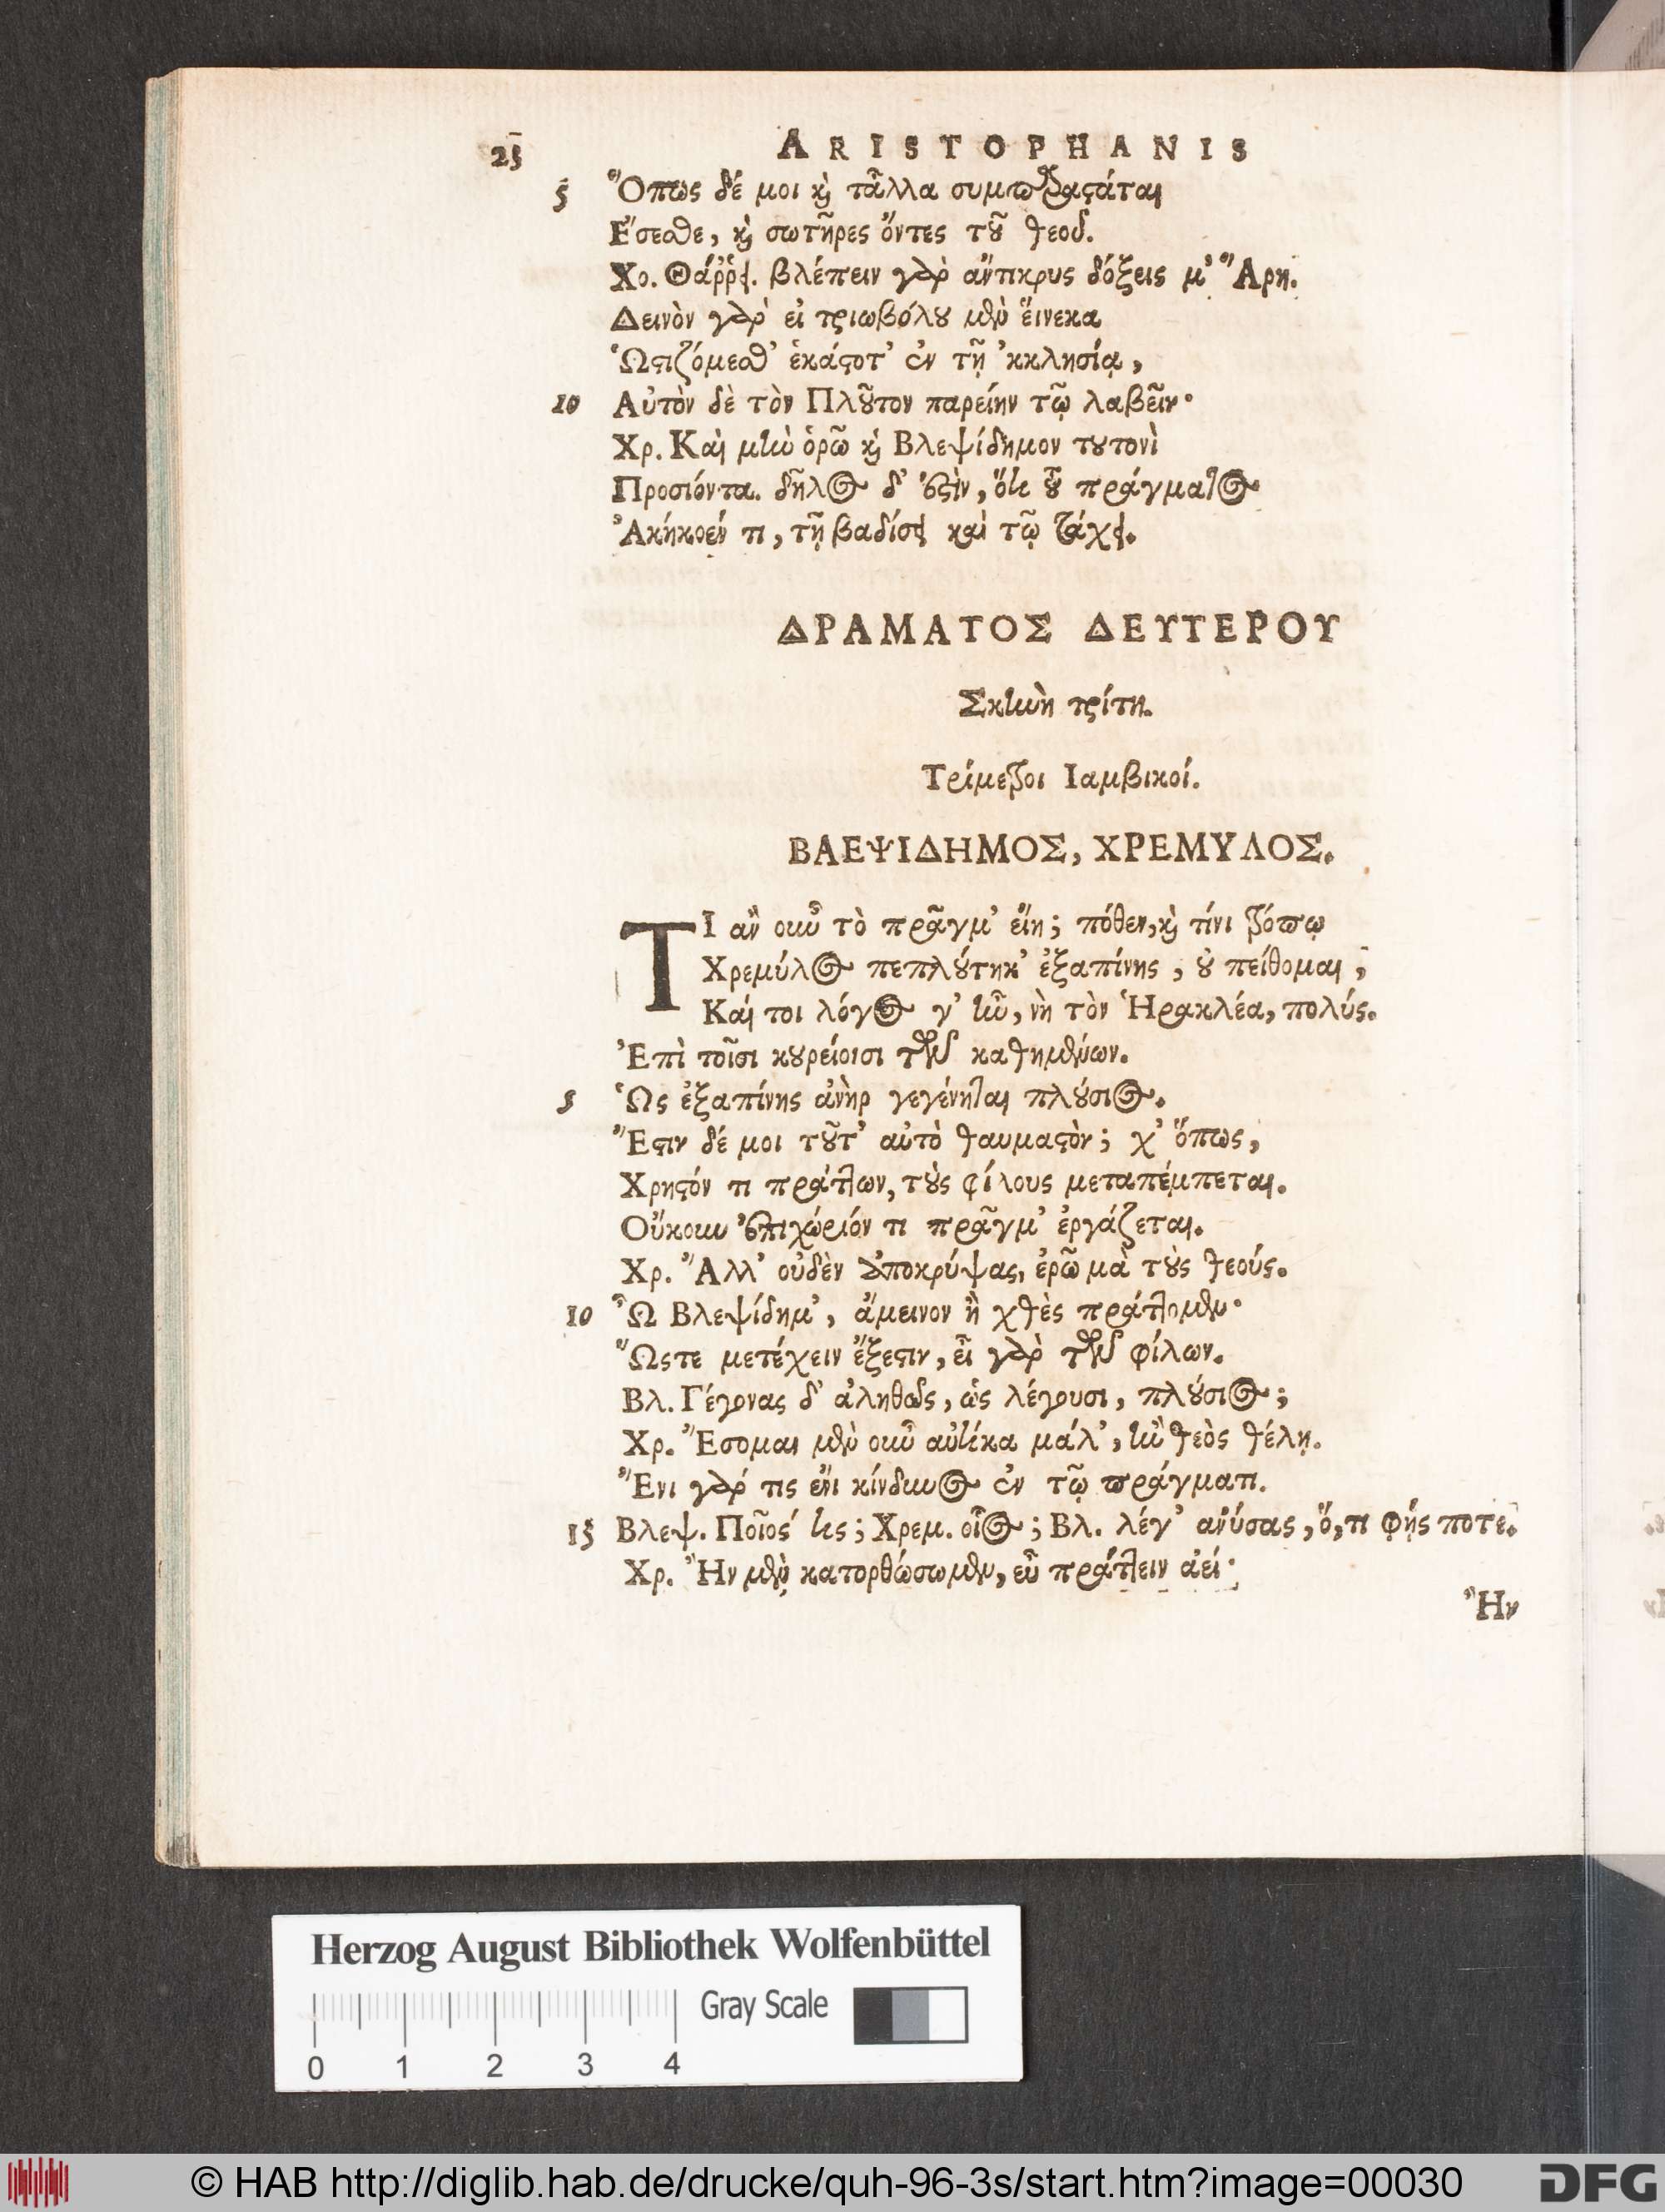 25 ARISTOPHANIS
5 Ὅπως δέ μοι καὶ τἆλλα συμπαραστάται
Ἔσεσθε, καὶ σωτῆρες ὄντες τοῦ θεοῦ.
Χο. Θάῤῥει. βλέπειν γὰρ ἄντικρυς δόξεις μ’ Ἄρη.
Δεινὸν γὰρ εἰ τριωβόλου μὲν ἕινεκα
Ὡστιζόμεσθ’ ἑκάστοτ’ ἐν τῇ ’κκλησίᾳ,
10 Αὐτὸν δὲ τὸν Πλοῦτον παρείην τῷ λαβεῖν·
Χρ. Καὶ μὴν ὁρῶ καὶ Βλεψίδημον τουτονὶ
Προσιόντα. δῆλος δ’ ἐστὶν, ὅτι τοῦ πράγματος
Ἀκήκοέν τι, τῇ βαδίσει καὶ τῷ τάχει.
ΔΡΑΜΑΤΟΣ ΔΕΥΤΕΡΟΥ
Σκηνὴ τρίτη.
Τρίμετροι Ιαμβικοί.
ΒΛΕΨΙΔΗΜΟΣ, ΧΡΕΜΥΛΟΣ.
ΤΙ ἂν οὖν τὸ πρᾶγμ’ εἴη; πόθεν, καὶ τίνι τρόπῳ
Χρεμύλος πεπλούτηκ’ ἐξαπίνης, οὐ πείθομαι,
Καί τοι λόγος γ’ ἦν, νὴ τὸν Ἡρακλέα, πολύς.
Ἐπὶ τοῖσι κουρείοισι τῶν καθημένων.
5 Ὡς ἐξαπίνης ἀνὴρ γεγένηται πλούσιος.
Ἔστιν δέ μοι τοῦτ’ αὐτὸ θαυμαστὸν; χ’ ὅπως,
Χρηστόν τι πράττων, τοὺς φίλους μεταπέμπεται.
Οὔκουν ἐπιχώριόν τι πρᾶγμ’ ἐργάζεται.
Χρ. Ἀλλ’ οὐδὲν ἀποκρύψας, ἐρῶ μὰ τοὺς θεούς.
10 Ὦ Βλεψίδημ’, ἄμεινον ἢ χθὲς πράττομεν·
Ὥστε μετέχειν ἔξεστιν, εἶ γὰρ τῶν φίλων.
Βλ. Γέγονας δ’ ἀληθῶς, ὡς λέγουσι, πλούσιος;
Χρ. Ἔσομαι μὲν οὖν αὐτίκα μάλ’, ἢν θεὸς θέλῃ.
Ἔνι γάρ τις ἔνι κίνδυνος ἐν τῷ πράγματι.
15 Βλεψ. Ποῖός τις; Χρεμ. οἷος; Βλ. λέγ’ ἀνύσας, ὅ, τι φῄς ποτε.
Χρ. Ἢν μὲν κατορθώσωμεν, εὖ πράττειν ἀεί·
Ἢν
Herzog August Bibliothek Wolfenbüttel
Gray Scale
0 1 2 3 4
© HAB http://diglib.hab.de/drucke/quh-96-3s/start.htm?image=00030
DFG